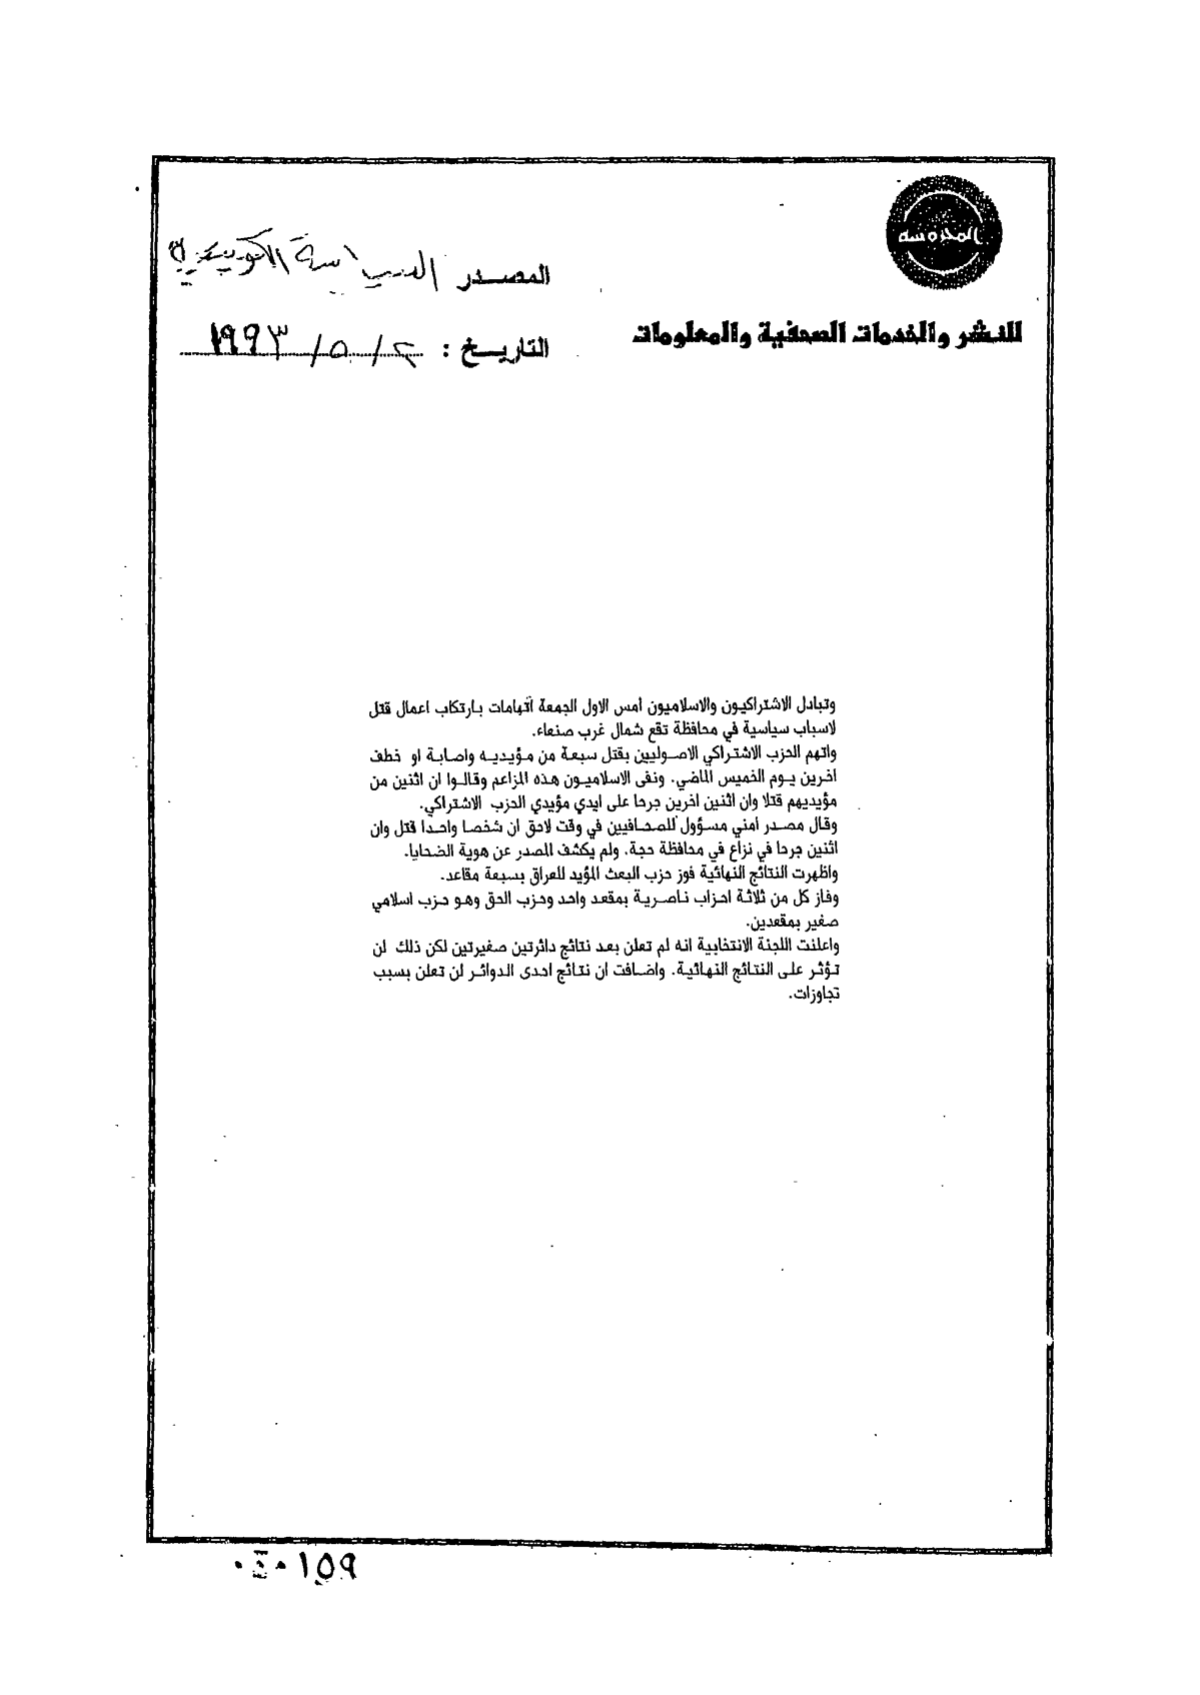 المحروسة
للنشر والخدمات الصحفية والمعلومات
المصدر السياسة الكويتية
التاريخ : ٢ / ٥ / ١٩٩٣
وتبادل الاشتراكيون والاسلاميون أمس الاول الجمعة أتهامات بارتكاب اعمال قتل
لاسباب سياسية في محافظة تقع شمال غرب صنعاء.
واتهم الحزب الاشتراكي الاصوليين بقتل سبعة من مؤيديه واصابة او خطف
اخرين يوم الخميس الماضي. ونفى الاسلاميون هذه المزاعم وقالوا ان اثنين من
مؤيديهم قتلا وان اثنين اخرين جرحا على ايدي مؤيدي الحزب الاشتراكي.
وقال مصدر أمني مسؤول للصحافيين في وقت لاحق ان شخصا واحدا قتل وان
اثنين جرحا في نزاع في محافظة حجة. ولم يكشف المصدر عن هوية الضحايا.
واظهرت النتائج النهائية فوز حزب البعث المؤيد للعراق بسبعة مقاعد.
وفاز كل من ثلاثة احزاب ناصرية بمقعد واحد وحزب الحق وهو حزب اسلامي
صغير بمقعدين.
واعلنت اللجنة الانتخابية انه لم تعلن بعد نتائج دائرتين صغيرتين لكن ذلك لن
تؤثر على النتائج النهائية. واضافت ان نتائج احدى الدوائر لن تعلن بسبب
تجاوزات.